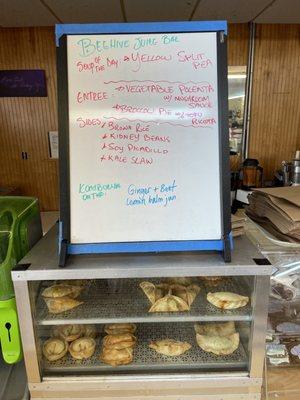 BEEHIVE JUICE BAR
SOUP OF THE DAY → YELLOW SPLIT PEA
ENTREE → VEGETABLE POLENTA
W/ MUSHROOM SAUCE
→ BROCCOLI PIE W/ TOFU RICOTTA
SIDES • BROWN RICE
• KIDNEY BEANS
• SOY PICADILLO
• KALE SLAW
KOMBUCHA ON TAP:
Ginger + Beet
Lemon balm